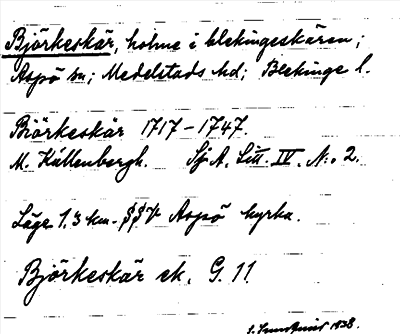 Björkeskär, holme i blekingeskären;
Aspö sn; Medelstads hd; Blekinge l.
Biörkeskär 1717-1747.
M. Källenbergh. Sj. A. Litt. IV. N:o 2.
Läge 1.3 km. SSV Aspö kyrka.
Björkeskär ek. G. 11.
1938.